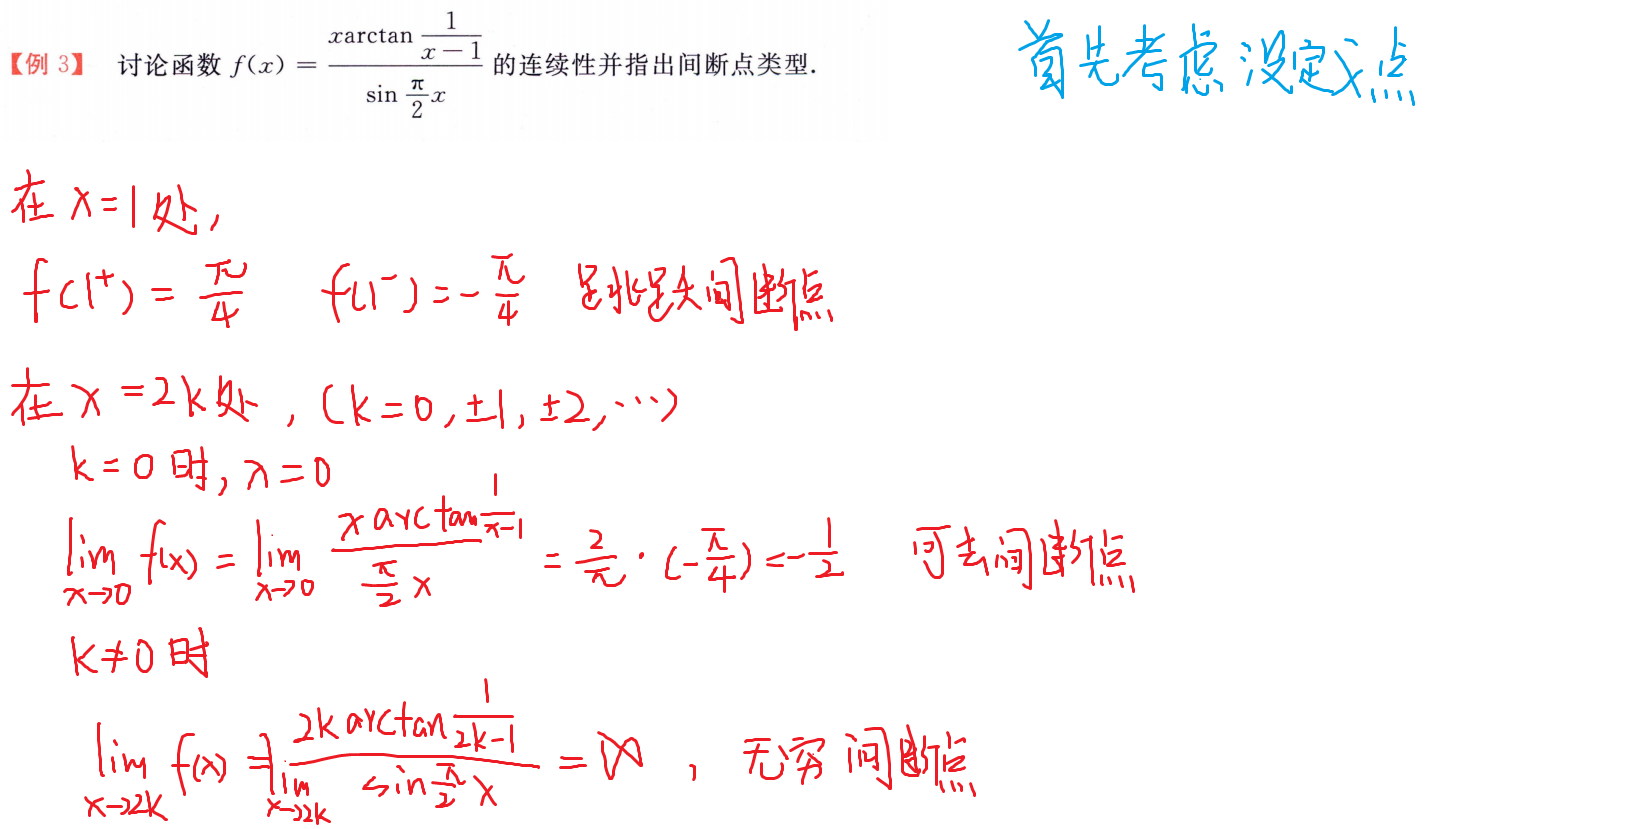 【例 3】 讨论函数 f(x) = \frac{x\arctan\frac{1}{x-1}}{\sin\frac{π}{2}x} 的连续性并指出间断点类型.
首先考虑没定义点
在 x=1 处,
f(1⁺) = \frac{π}{4} f(1⁻) = -\frac{π}{4} 是跳跃间断点
在 x = 2k 处, (k=0, ±1, ±2, ⋯)
k=0 时, x=0
\lim_{x→0} f(x) = \lim_{x→0} \frac{x\arctan\frac{1}{x-1}}{\frac{π}{2}x} = \frac{2}{π}·(-\frac{π}{4}) = -\frac{1}{2} 可去间断点
k≠0 时
\lim_{x→2k} f(x) = \frac{2k\arctan\frac{1}{2k-1}}{\lim_{x→2k} \sin\frac{π}{2}x} = ∞ , 无穷间断点